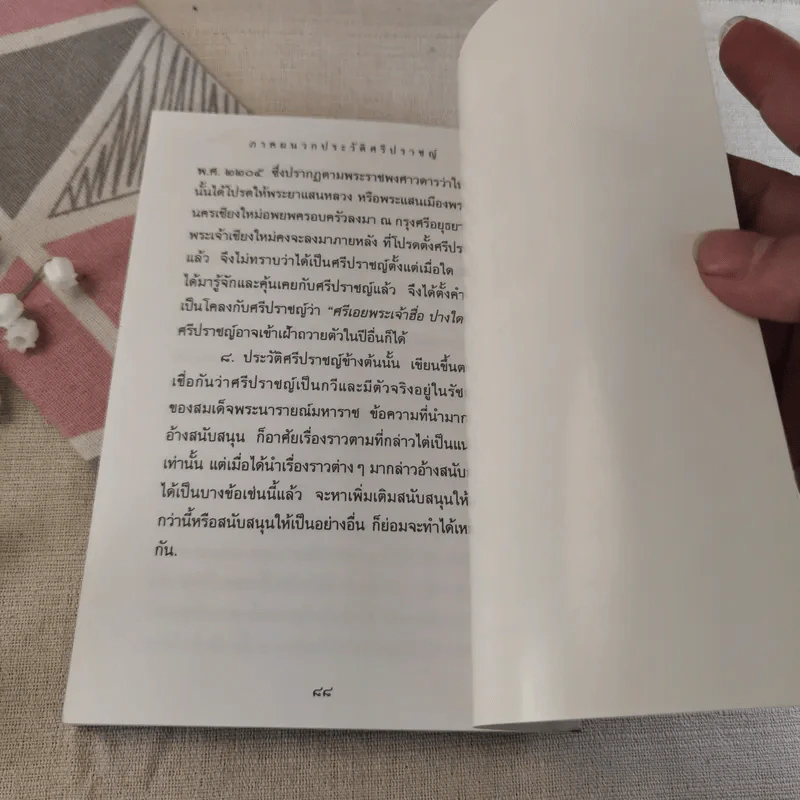 ภาคผนวกประวัติศรีปราชญ์
พ.ศ. ๒๒๐๕ ซึ่งปรากฏตามพระราชพงศาวดารว่าใ
นั้นได้โปรดให้พระยาแสนหลวง หรือพระแสนเมืองพร
นครเชียงใหม่อพยพครอบครัวลงมา ณ กรุงศรีอยุธย
พระเจ้าเชียงใหม่คงจะลงมาภายหลัง ที่โปรดตั้งศรีปร
แล้ว จึงไม่ทราบว่าได้เป็นศรีปราชญ์ตั้งแต่เมื่อใด
ได้มารู้จักและคุ้นเคยกับศรีปราชญ์แล้ว จึงได้ตั้งคำ
เป็นโคลงกับศรีปราชญ์ว่า “ศรีเอยพระเจ้าฮื่อ ปางใด
ศรีปราชญ์อาจเข้าเฝ้าถวายตัวในปีอื่นก็ได้
๘. ประวัติศรีปราชญ์ข้างต้นนั้น เขียนขึ้นต
เชื่อกันว่าศรีปราชญ์เป็นกวีและมีตัวจริงอยู่ในรัช
ของสมเด็จพระนารายณ์มหาราช ข้อความที่นำมาก
อ้างสนับสนุน ก็อาศัยเรื่องราวตามที่กล่าวไต่เป็นแน
เท่านั้น แต่เมื่อได้นำเรื่องราวต่าง ๆ มากล่าวอ้างสนับ
ได้เป็นบางข้อเช่นนี้แล้ว จะหาเพิ่มเติมสนับสนุนให้
กว่านี้หรือสนับสนุนให้เป็นอย่างอื่น ก็ย่อมจะทำได้เห
กัน.
๘๘